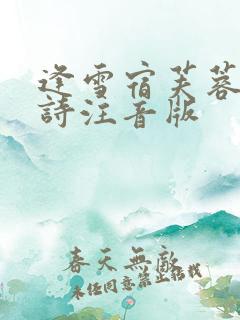 逢雪宿芙蓉
詩注音版
春天無敵
未任同意禁止转载